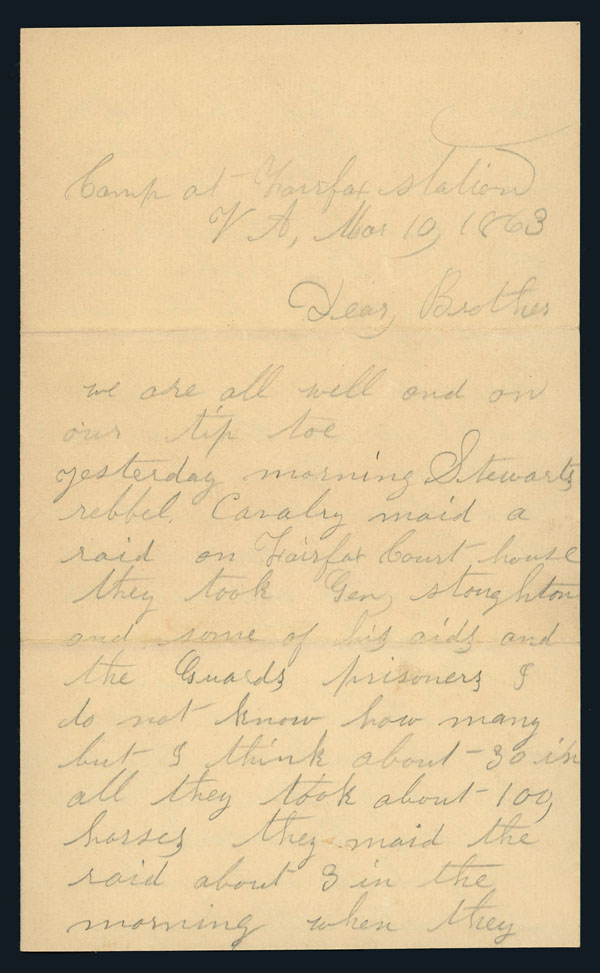 Camp at Fairfax station
V A, Mar 10, 1863
Dear Brother
we are all well and on
our tip toe
yesterday morning Stewarts
rebbel. Cavalry maid a
raid on Fairfax Court house
they took Gen, stoughton
and some of his aids and
the Guards prisoners I
do not know how many
but I think about - 30 in
all they took about - 100,
horses they maid the
raid about 3 in the
morning when they